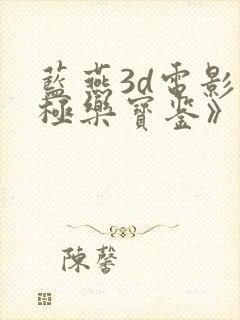 藍燕3d電影
極樂寶鉴》
陳馨